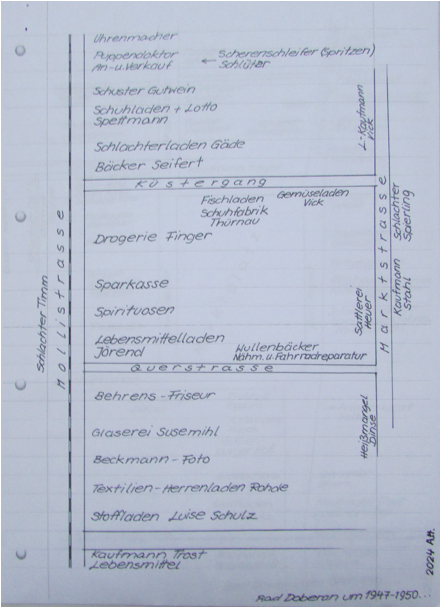 Uhrenmacher
Puppendoktor
An- u. Verkauf
← Scherenschleifer (Spritzen)
Schlüter
Schuster Gutwein
Schuhladen + Lotto
Speltmann
Schlachterladen Gäde
Bäcker Seifert
L-Kaufmann
Vick
Küstergang
Fischladen
Schuhfabrik
Thürnau
Gemüseladen
Vick
Drogerie Finger
Sparkasse
Spirituosen
Lebensmittelladen
Jörend
Wullenbäcker
Nähm. u. Fahrradreparatur
Sattlerei
Heuer
Marktstrasse
Schlachter
Sperling
Kaufmann
Stahl
Schlachter Timm
Mollistrasse
Querstrasse
Behrens - Friseur
Glaserei Susemihl
Beckmann - Foto
Textilien - Herrenladen Rohde
Stoffladen Luise Schulz
Heißmangel
Dinse
Kaufmann Trost
Lebensmittel
2024 Att.
Bad Doberan um 1947-1950...